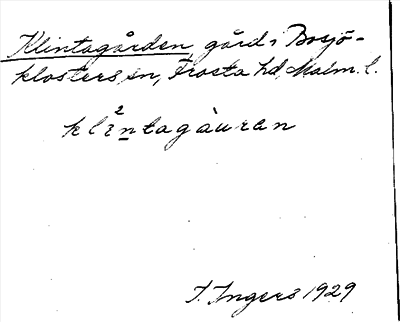 Klintagården, gård i Bosjö-
klosters sn, Frosta hd, Malm. l.
kli²ntagàuran
I. Ingers 1929